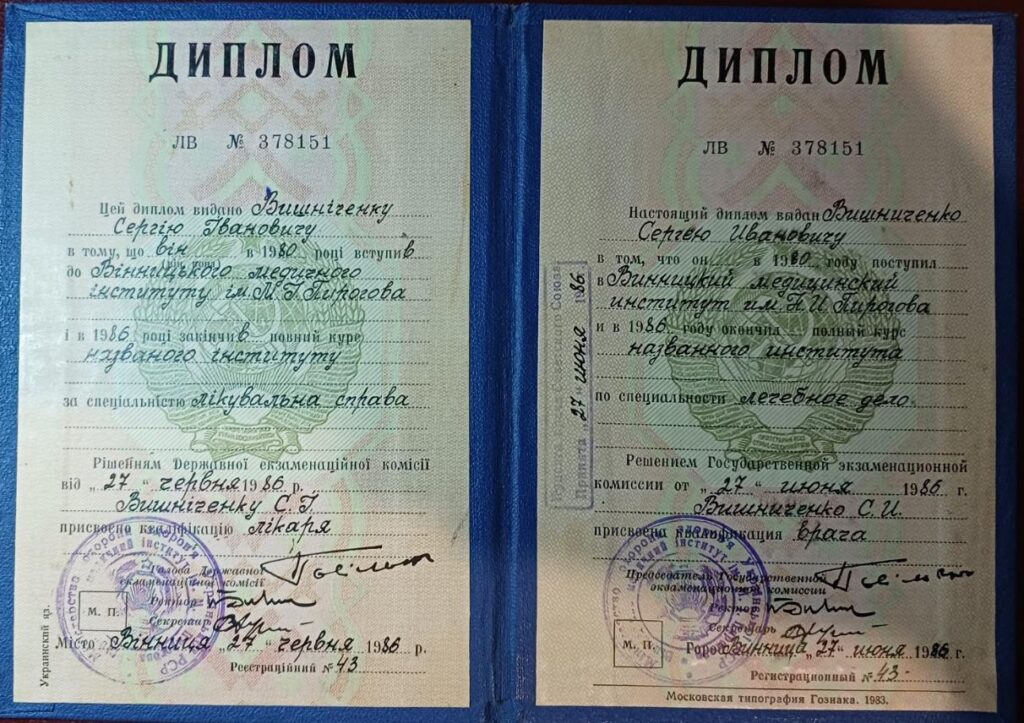 ДИПЛОМ
ЛВ № 378151
Цей диплом видано Вишніченку
Сергію Івановичу
в тому, що він в 1980 році вступив
до Вінницького медичного
інституту ім. М. І. Пирогова
і в 1986 році закінчив повний курс
названого інституту
за спеціальністю лікувальна справа
Рішенням Державної екзаменаційної комісії
від „27“ червня 1986 р.
Вишніченку С. І.
присвоєно кваліфікацію лікаря
Голова Державної
екзаменаційної комісії
Ректор
Секретар
М. П.
Місто Вінниця „27“ червня 1986 р.
Реєстраційний № 43
Украинский яз.
ДИПЛОМ
ЛВ № 378151
Настоящий диплом выдан Вишниченко
Сергею Ивановичу
в том, что он в 1980 году поступил
в Винницкий медицинский
институт им. Н. И. Пирогова
и в 1986 году окончил полный курс
названного института
по специальности лечебное дело
Решением Государственной экзаменационной
комиссии от „27“ июня 1986 г.
Вишниченко С. И.
присвоена квалификация врача
Председатель Государственной
экзаменационной комиссии
Ректор
Секретарь
М. П.
Город Винница „27“ июня 1986 г.
Регистрационный № 43
Московская типография Гознака. 1983.
Принята „27“ июня 1986